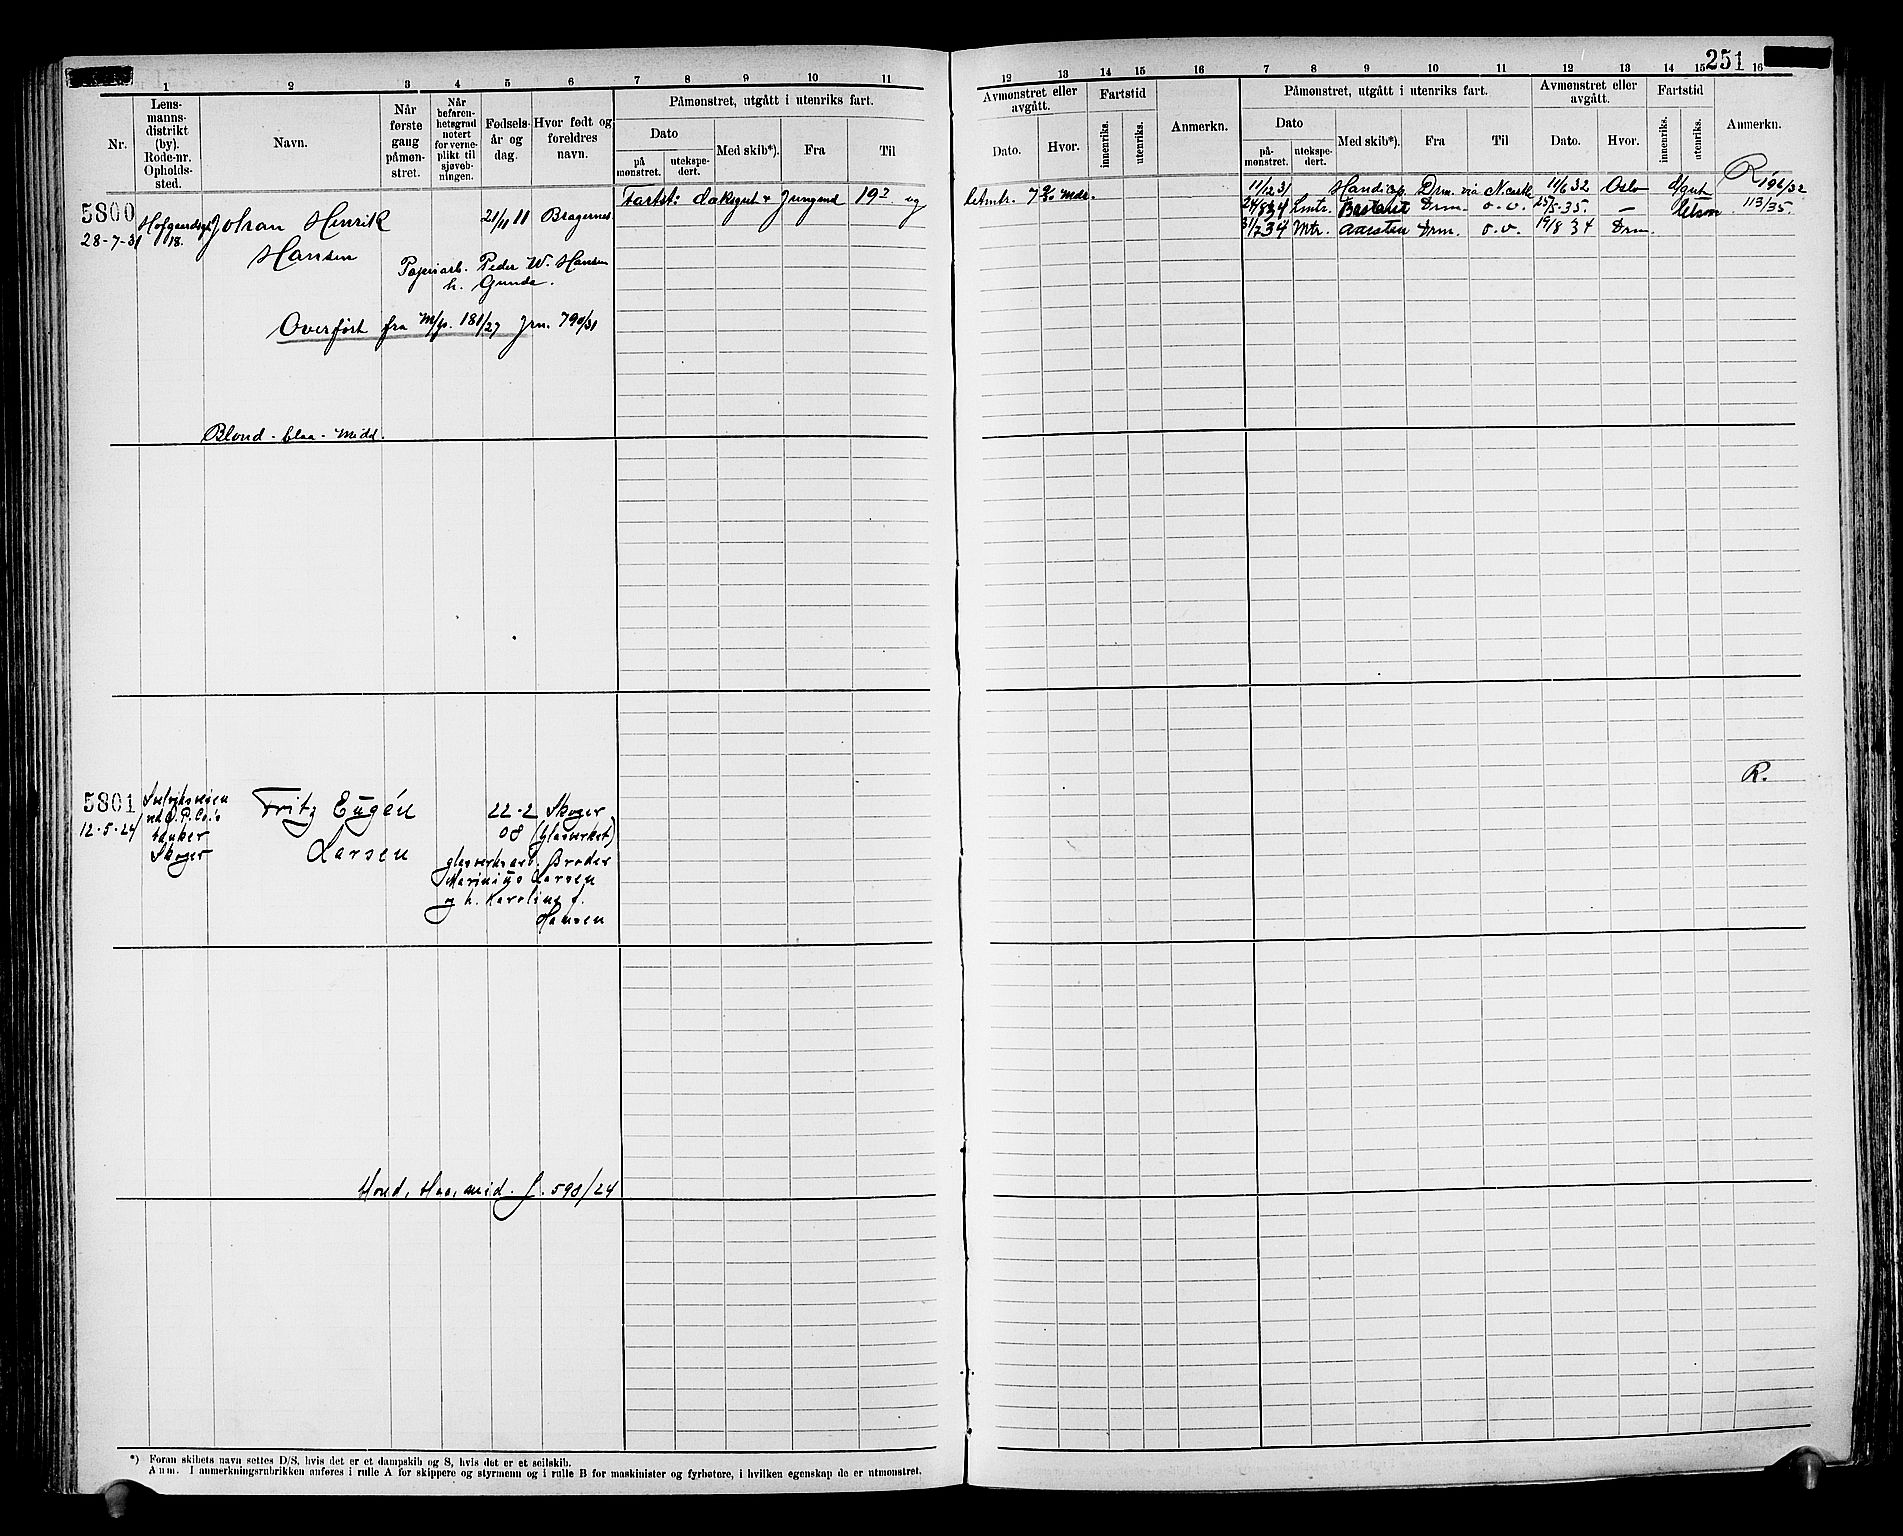 251
1 2 3 4 5 6 7 8 9 10 11
12 13 14 15 16 7 8 9 10 11 12 13 14 15 16
Nr.
Lens-
manns-
distrikt
(by).
Rode-nr.
Opholds-
sted.
Navn.
Når
første
gang
påmøn-
stret.
Når
befaren-
hetsgrad
notert
for verne-
plikt til
sjøvæb-
ningen.
Fødsels-
år og
dag.
Hvor født og
foreldres
navn.
Påmønstret, utgått i utenriks fart.
Dato
på
mønstret.
utekspe-
dert.
Med skib*).
Fra
Til
Avmønstret eller
avgått.
Dato.
Hvor.
Fartstid
innenriks.
utenriks.
Anmerkn.
Påmønstret, utgått i utenriks fart.
Dato
på-
mønstret.
utekspe-
dert.
Med skib*).
Fra
Til
Avmønstret eller
avgått.
Dato.
Hvor.
Fartstid
innenriks.
utenriks.
Anmerkn.
5800
28-7-31
18.
Johan Henrik
Hansen
21/11 11
Bragernes
Papirarb. Peder W. Hansen
h. Gunda.
Overført fra M/p. 181/27 Jrn. 790/31
Blond - blaa - Midd.
Fartst: dæksgut & Jungmand 19 og
letmtr. 7 mdr.
11/12 31 Handicap. Drm. via N. 11/6 32 Oslo d/gut R 196/32
34 Lmtr. Drm. o.v. 25/5-35. — 113/35.
31/7 34 Mtr. Drm. o.v. 19/8 34 Drm.
5801
12-5-24
Skoger
Fritz Eugén
Larsen
22-2
08
Skoger
(Glasverket)
glasverksarb. Broder
Marinius Larsen
og h. Karoline f.
Hansen
R.
blond, blaa, mid. J. 590/24
*) Foran skibets navn settes D/S, hvis det er et dampskib og S, hvis det er et seilskib.
Anm. I anmerkningsrubrikken anføres i rulle A for skippere og styrmenn og i rulle B for maskinister og fyrbøtere, i hvilken egenskap de er utmønstret.